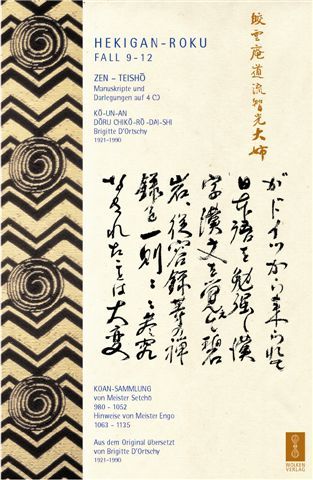 HEKIGAN-ROKU
FALL 9-12
ZEN – TEISHŌ
Manuskripte und
Darlegungen auf 4 CD
KŌ-UN-AN
DŌRU CHIKŌ-RŌ-DAI-SHI
Brigitte D'Ortschy
1921-1990
雲庵道流智光大姉
がドイツから来られて
日本語を勉強し漢
字漢文を覚え碧
岩、従容録等の禅
録を一則々々参究
なされたことは大変
KOAN-SAMMLUNG
von Meister Setchō
980 - 1052
Hinweise von Meister Engo
1063 - 1135
Aus dem Original übersetzt
von Brigitte D'Ortschy
1921-1990
WOLKEN
VERLAG